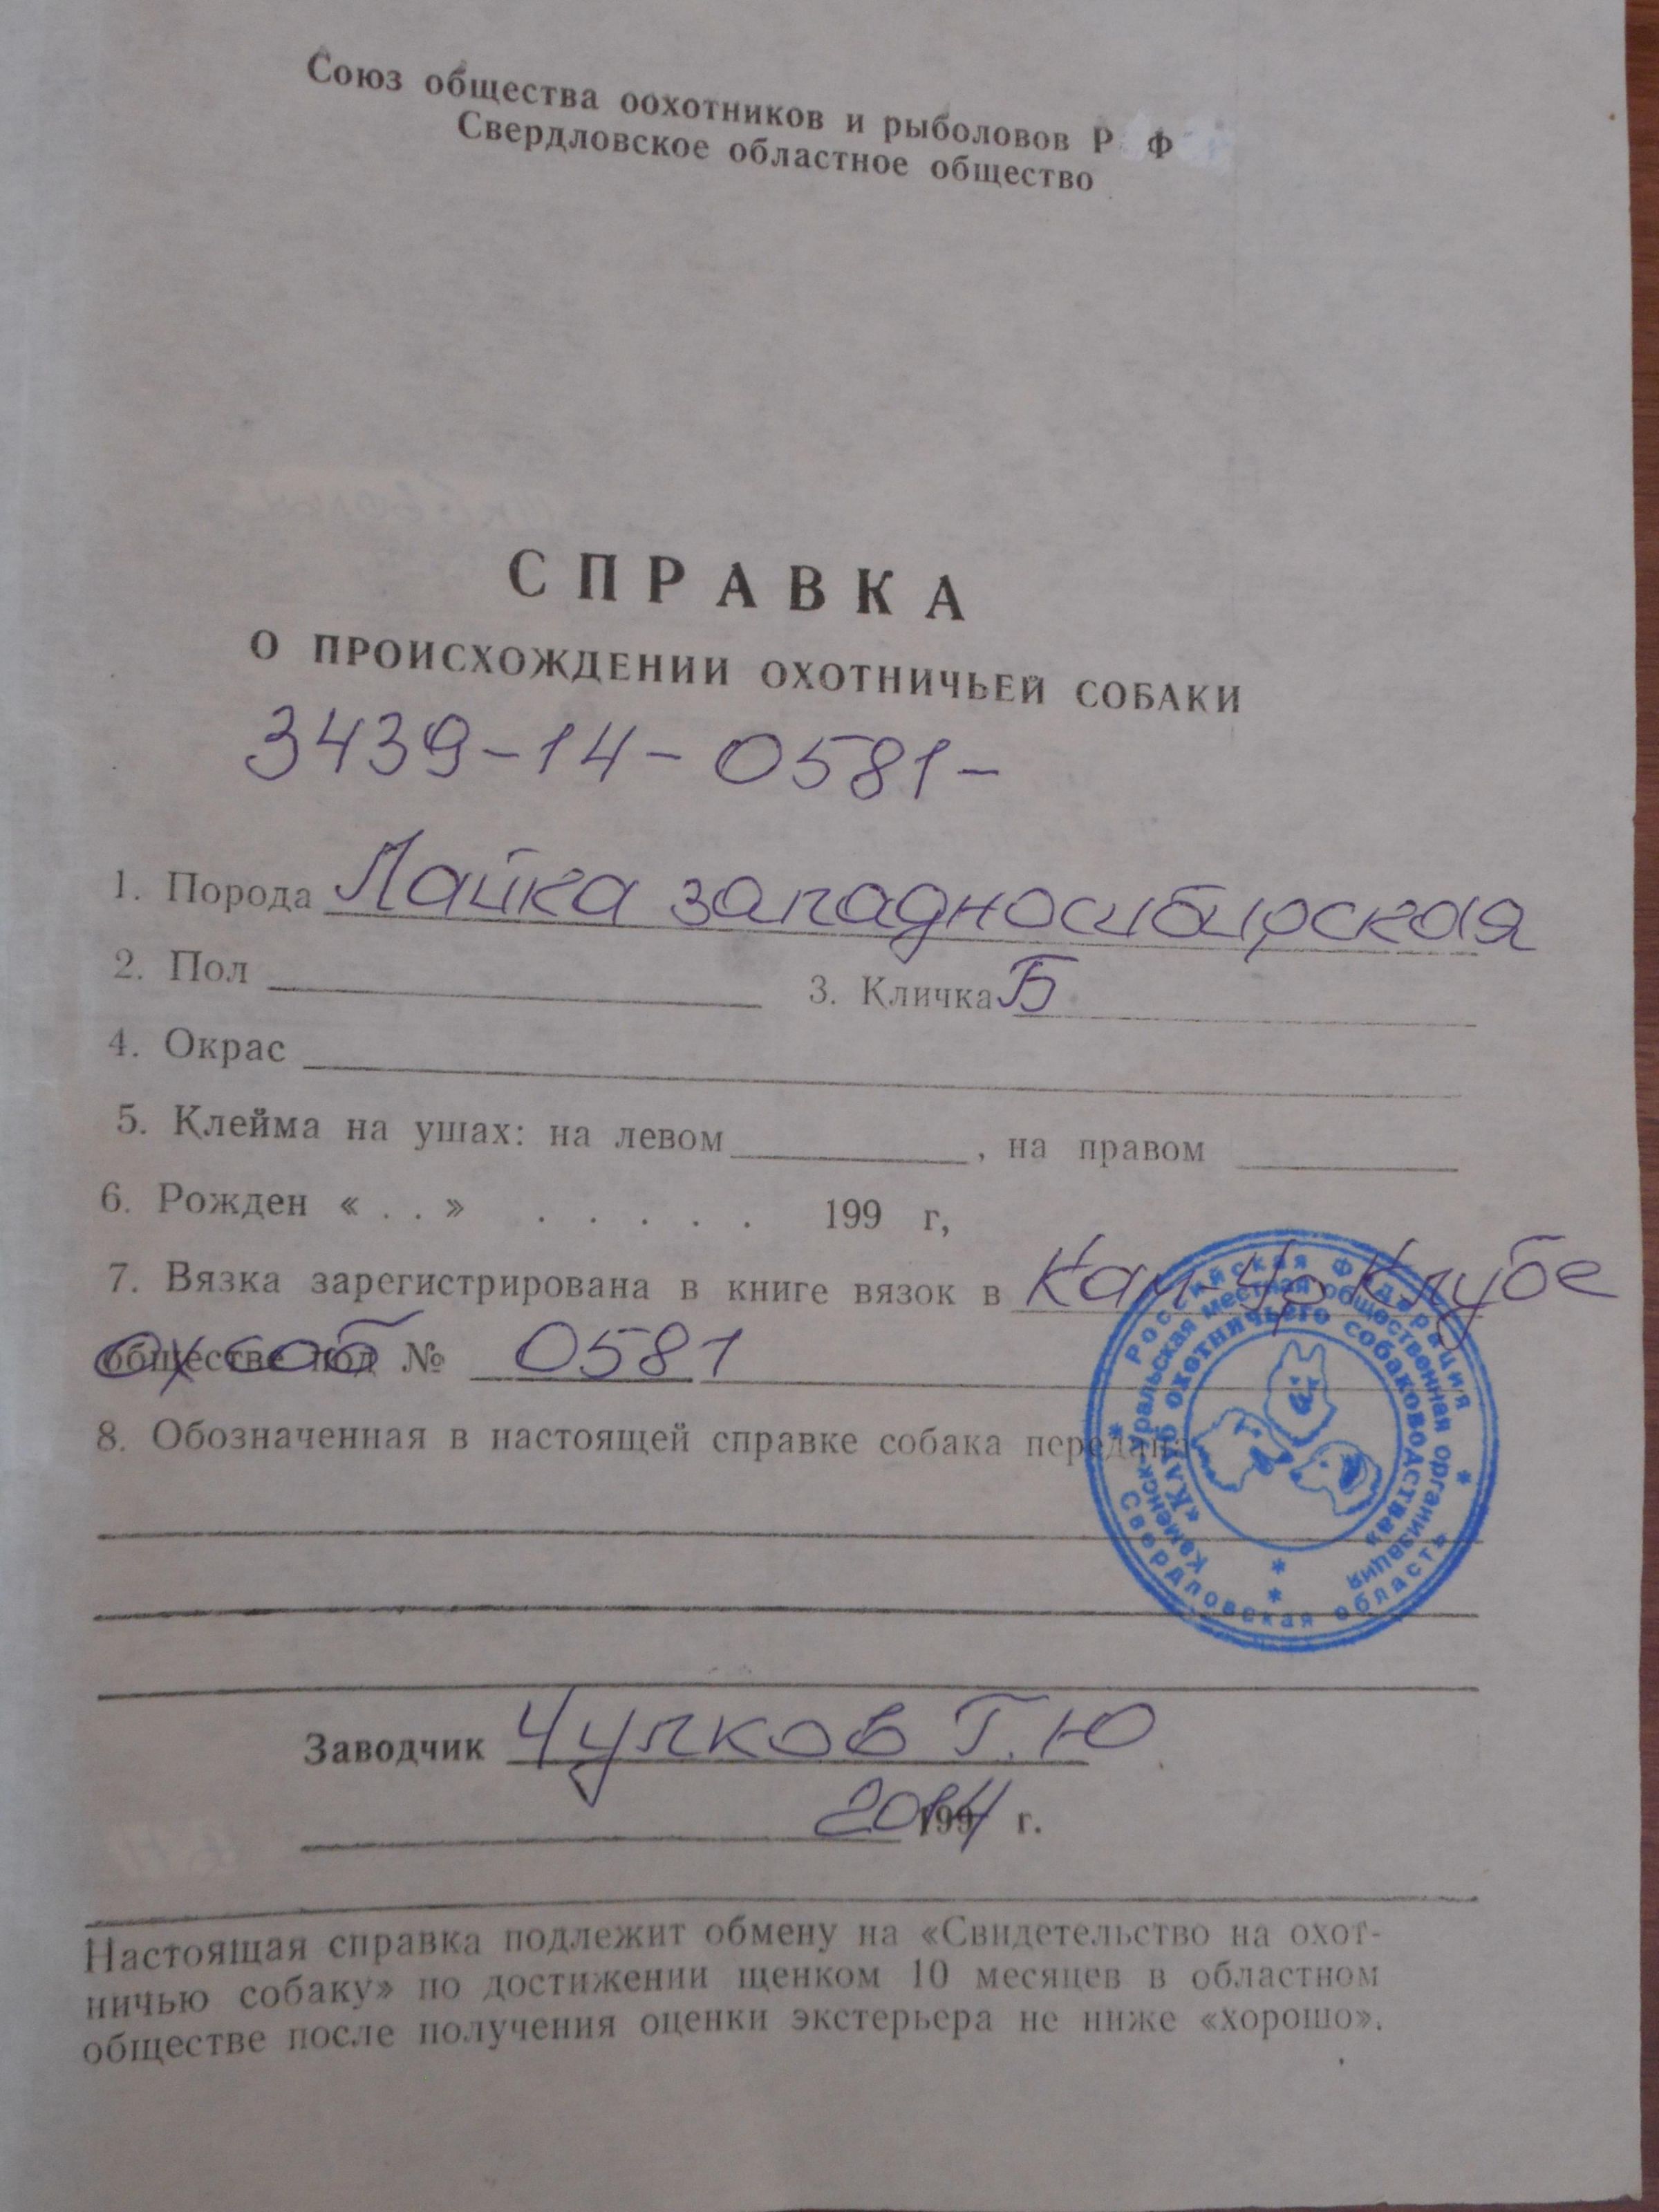 Союз общества оохотников и рыболовов Р Ф
Свердловское областное общество
СПРАВКА
О ПРОИСХОЖДЕНИИ ОХОТНИЧЬЕЙ СОБАКИ
3439-14-0581-
1. Порода Лайка западносибирская
2. Пол 3. Кличка Б
4. Окрас
5. Клейма на ушах: на левом , на правом
6. Рожден « . . » . . . . . 199 г,
7. Вязка зарегистрирована в книге вязок в Кам-Ур Клубе
ох соб
обществе под № 0581
8. Обозначенная в настоящей справке собака передана
Российская Федерация
Свердловская область
Каменск-Уральская местная общественная организация
«Клуб охотничьего собаководства»
Заводчик Чулков Г.Ю
2014 199 г.
Настоящая справка подлежит обмену на «Свидетельство на охот-
ничью собаку» по достижении щенком 10 месяцев в областном
обществе после получения оценки экстерьера не ниже «хорошо».